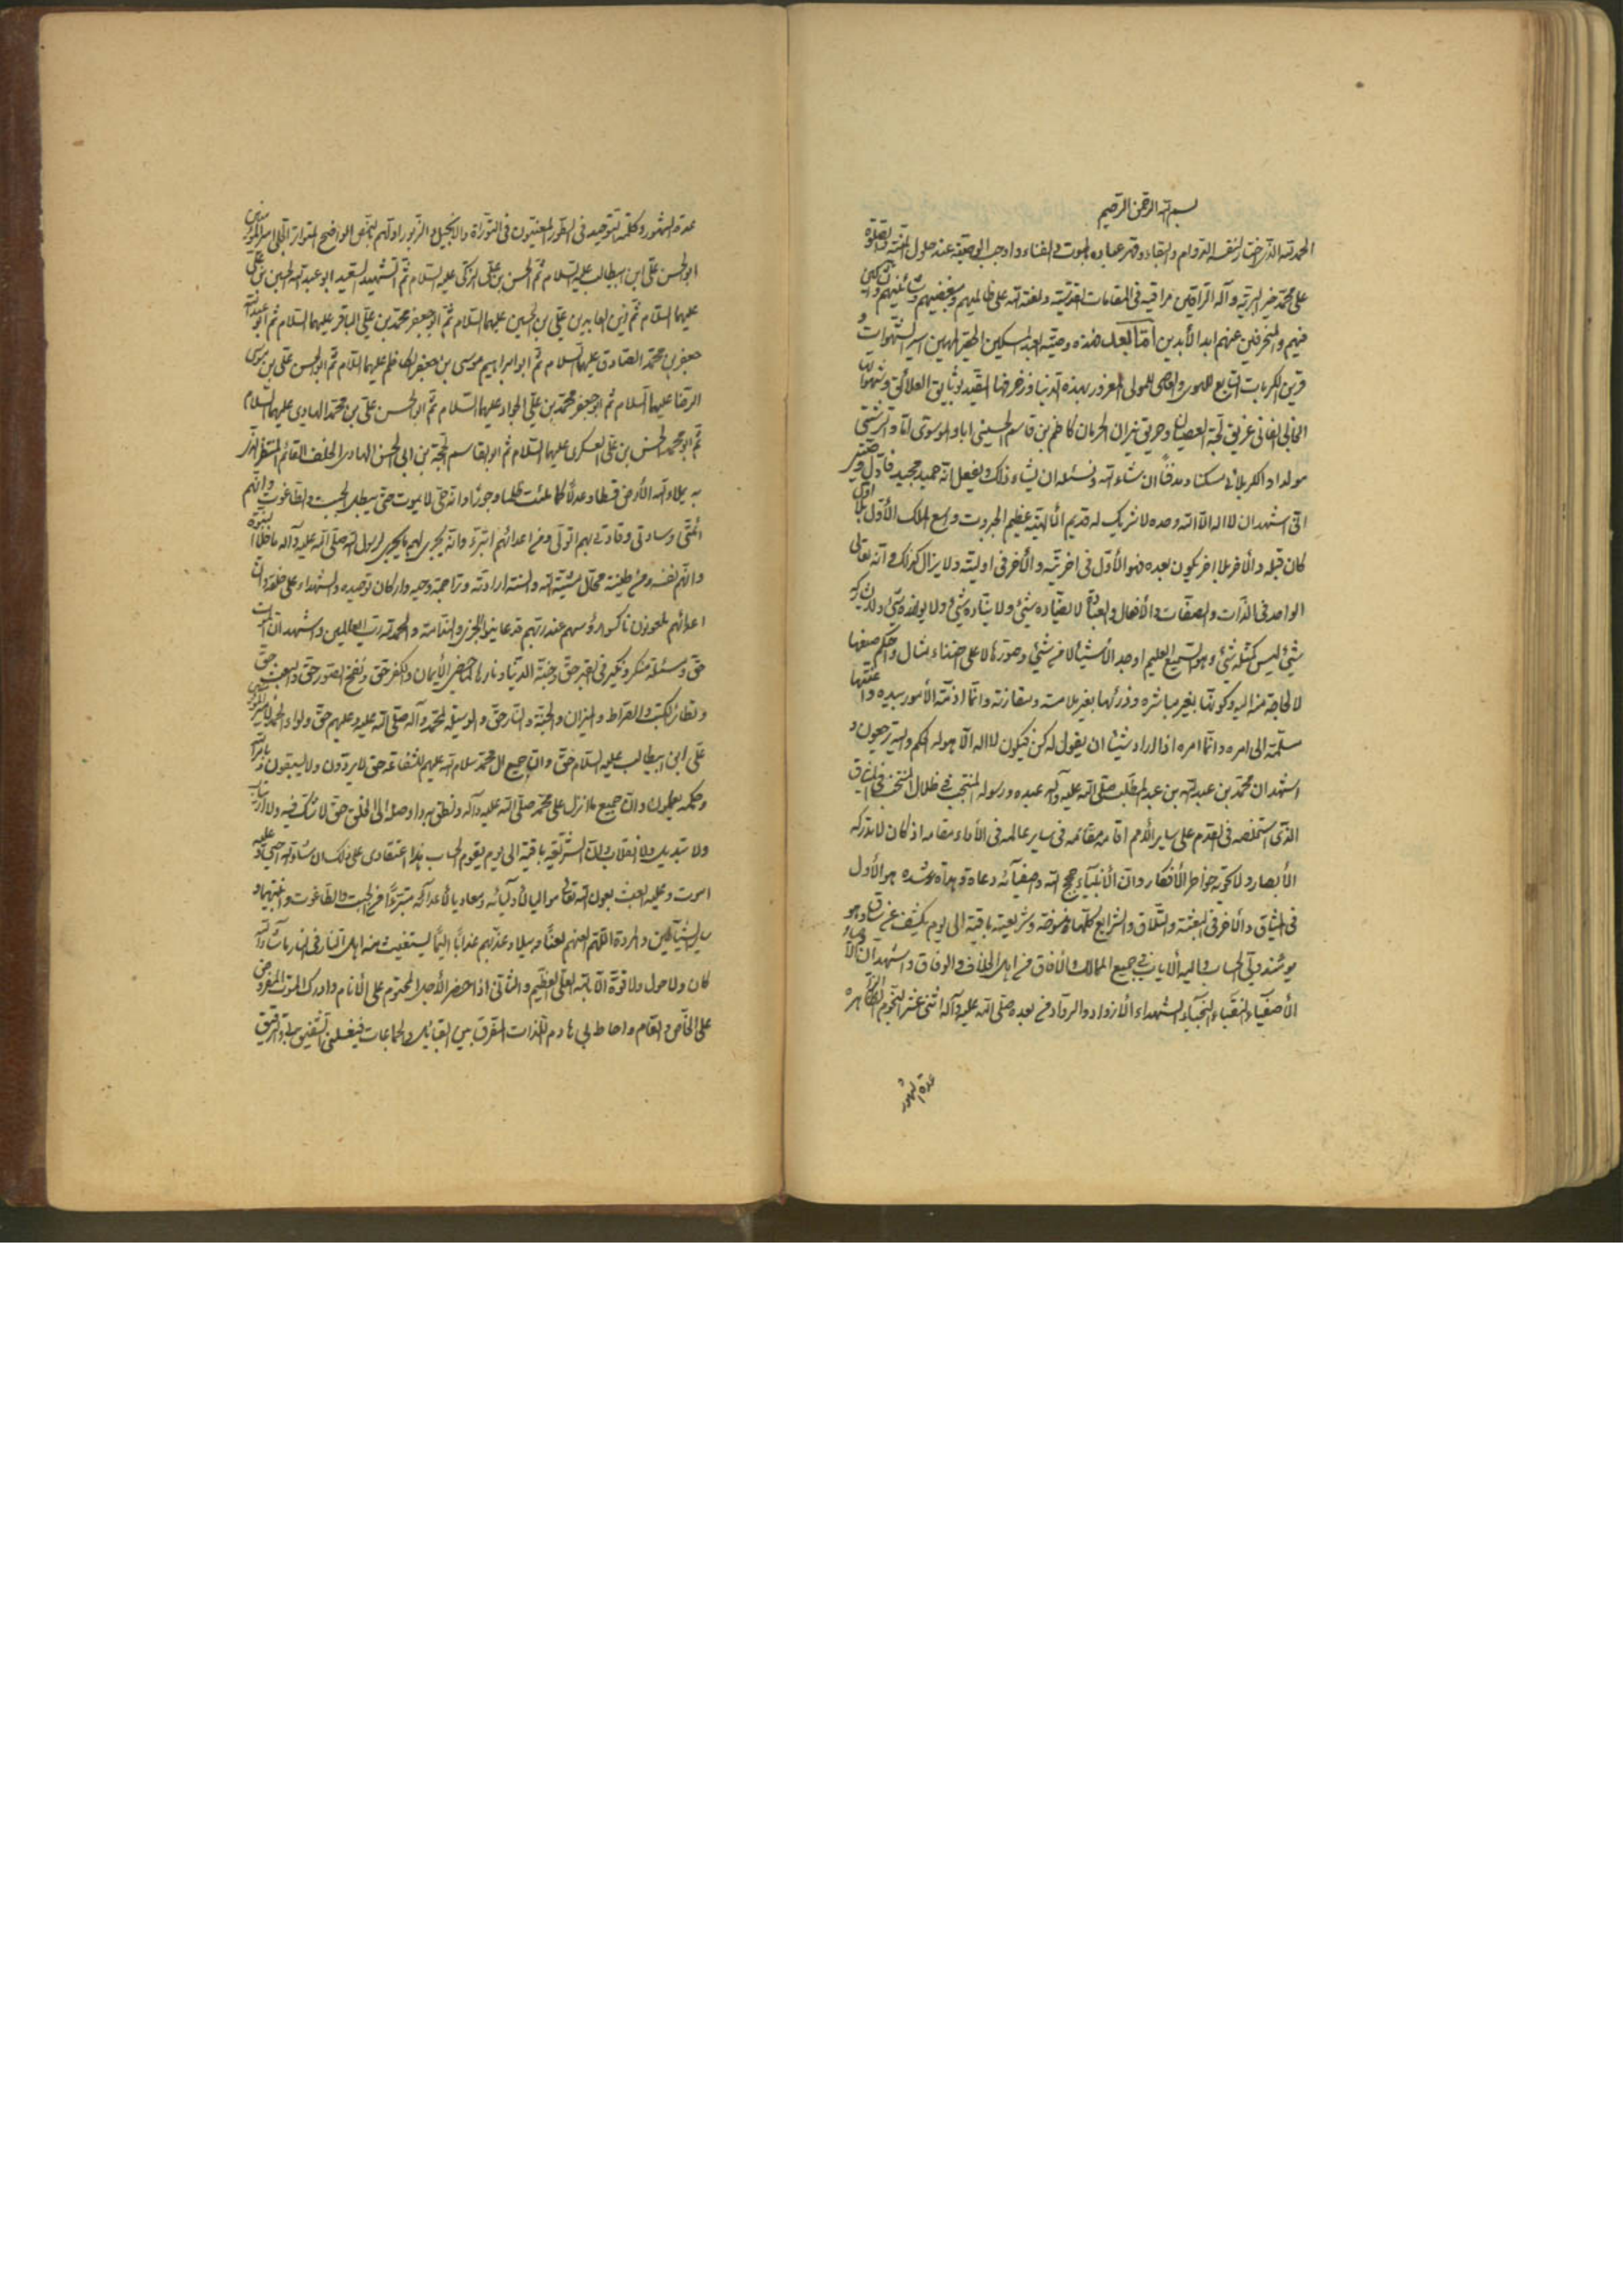 بسم الله الرحمن الرحيم
الحمد لله الذي اختار لنفسه الدوام والبقاء وقهر عباده بالموت والفناء واوجب الوصية عند حلول المنية والصلوة
على محمد خير البرية وآله الراقين مراقيه في المقامات القدسية ولعنة الله على ظالميهم ومبغضيهم وشانئيهم والشاكين
فيهم والمنحرفين عنهم ابد الأبدين اما بعد فهذه وصية العبد المسكين الحقير المهين اسير الشهوات و
قرين الكربات التابع للهوى والعاصي للمولى المغرور بهذه الدنيا وزخرفها المقيد بوثايق العلائق وشهواتها
الجاني الفاني غريق لجة العصيان وحريق نيران الحرمان كاظم بن قاسم الحسيني ابا والموسوي اما والرشتي
مولدا والكربلائي مسكنا ومدفنا ان شاء الله ونسئله ان يشاء ذلك ويفعل انه حميد مجيد فأول وصيتي
اني اشهد ان لا اله الا الله وحده لا شريك له قديم الالهية عظيم الجبروت واسع الملك الأول بلا اول
كان قبله والأخر بلا اخر يكون بعده فهو الأول في اخريته والأخر في اوليته ولا يزال كذلك وانه تعالى
الواحد في الذات والصفات والأفعال والعبادة لا يضاده شيء ولا يناده شيء ولا يوافقه شيء وليس كمثله
شيء ليس كمثله شيء وهو السميع العليم اوجد الأشياء لا من شيء وصورها لا على احتذاء مثال واحكم صنعها
لا لحاجة منه اليه وكونها بغير مباشرة وذرئها بغير ملامسة ومقارنة وانما ازمة الأمور بيده واعنتها
مسلمة الى امره وانما امره اذا اراد شيئا ان يقول له كن فيكون لا اله الا هو له الحكم واليه ترجعون و
اشهد ان محمد بن عبد الله بن عبد المطلب صلى الله عليه وآله عبده ورسوله المنتجب في ظلال المنتخب في الميثاق
الذي استخلصه في القدم على ساير الأمم اقامه مقامه في ساير عالمه في الأداء مقامه اذ كان لا تدركه
الأبصار ولا تحويه خواطر الأفكار وان الأنبيآء حجج الله واصفيآئه دعاة وهداة مرشده هو الأول
في الميثاق والأخر في البعثة والتلاق والشرايع كلها منسوخة وشريعته باقية الى يوم يكشف عن ساق وهو
يومئذ ولي الحساب واليه الأياب في جميع الممالك والأفاق من اهل الخلاف والوفاق واشهد ان اوصيائه
الأصفياء النقباء النجباء الشهداء الأذواد والرواد من بعده صلى الله عليه وآله اثنى عشر النجوم الظاهره
عدة الشهور
عدة الشهور وكلمة التوحيد في الطور المعنيون في التورٰاة والانجيل والزبور اولهم بالنص الواضح المتواتر الجلي امير المؤمنين
ابو الحسن علي ابن ابيطالب عليه السلام ثم الحسن بن علي الزكي عليه السلام ثم الشهيد السعيد ابو عبد الله الحسين بن علي
عليهما السلام ثم زين العابدين علي بن الحسين عليهما السلام ثم ابو جعفر محمد بن علي الباقر عليهما السلام ثم ابو عبد الله
جعفر بن محمد الصادق عليهما السلام ثم ابو ابراهيم موسى بن جعفر الكاظم عليهما السلام ثم ابو الحسن علي بن موسى
الرضا عليهما السلام ثم ابو جعفر محمد بن علي الجواد عليهما السلام ثم ابو الحسن علي بن محمد الهادي عليهما السلام
ثم ابو محمد الحسن بن علي العسكري عليهما السلام ثم ابو القاسم الحجة بن ابي الحسن الهادي الخلف القائم المنتظر الذي
به يملاء الله الأرض قسطا وعدلا كما ملئت ظلما وجورا وانه حي لا يموت حتى يبطل الجبت والطاغوت وانهم
ائمتي وسادتي وقادتي بهم اتولى ومن اعدائهم اتبرء وانه يجري لهم ما يجري لرسول الله صلى الله عليه وآله ما خلا النبوة
وانهم نفسه ومن طينته محال مشية الله والسنة ارادته وتراجمة وحيه واركان توحيده والشهداء على خلقه وان
اعدائهم ملعونون ناكسوا رؤسهم عند ربهم قد عاينوا الخزي والندامة والحمد لله رب العالمين واشهد ان الموت
حق وسئلة منكر ونكير في القبر حق وجنة الدنيا ونارها لماحضي الأيمان والكفر حق ونفخ الصور حق والبعث حق
وتطاير الكتب والصراط والميزان والجنة والنار حق والوسيلة لمحمد وآله صلى الله عليه وعليهم حق ولواء الحمد لأمير المؤمنين
علي ابن ابيطالب عليه السلام حق وان جميع ال محمد سلام الله عليهم للشفاعة حق لا يردون ولا يسبقون وبامر الله
وحكمه يعملون وان جميع ما نزل على محمد صلى الله عليه وآله ونطق به واوصله الى الخلق حق لا شك فيه ولا ارتياب
ولا تبديل ولا انقلاب وان الشريعة باقية الى يوم يقوم الحساب هذا اعتقادي على ذلك ان شاء الله احيى وعليه
اموت وعليه ابعث بعون الله تعالى مواليا لأوليائه ومعاديا لأعدآئه متبرءا من الجبت والطاغوت وابنتيهما و
ساير الشياطين والمردة اللهم العنهم لعنا وبيلا وعذبهم عذابا اليما يستغيث منه اهل النار في النار ما شاء الله
كان ولا حول ولا قوة الا بالله العلي العظيم والثاني اذا حضر الأجل المحتوم على الأنام وادرك الموت المفروض
على الخاص والعام واحاط بي هادم اللذات المفرق بين القبائل والجماعات فيغسلني الشفيق والرفيق